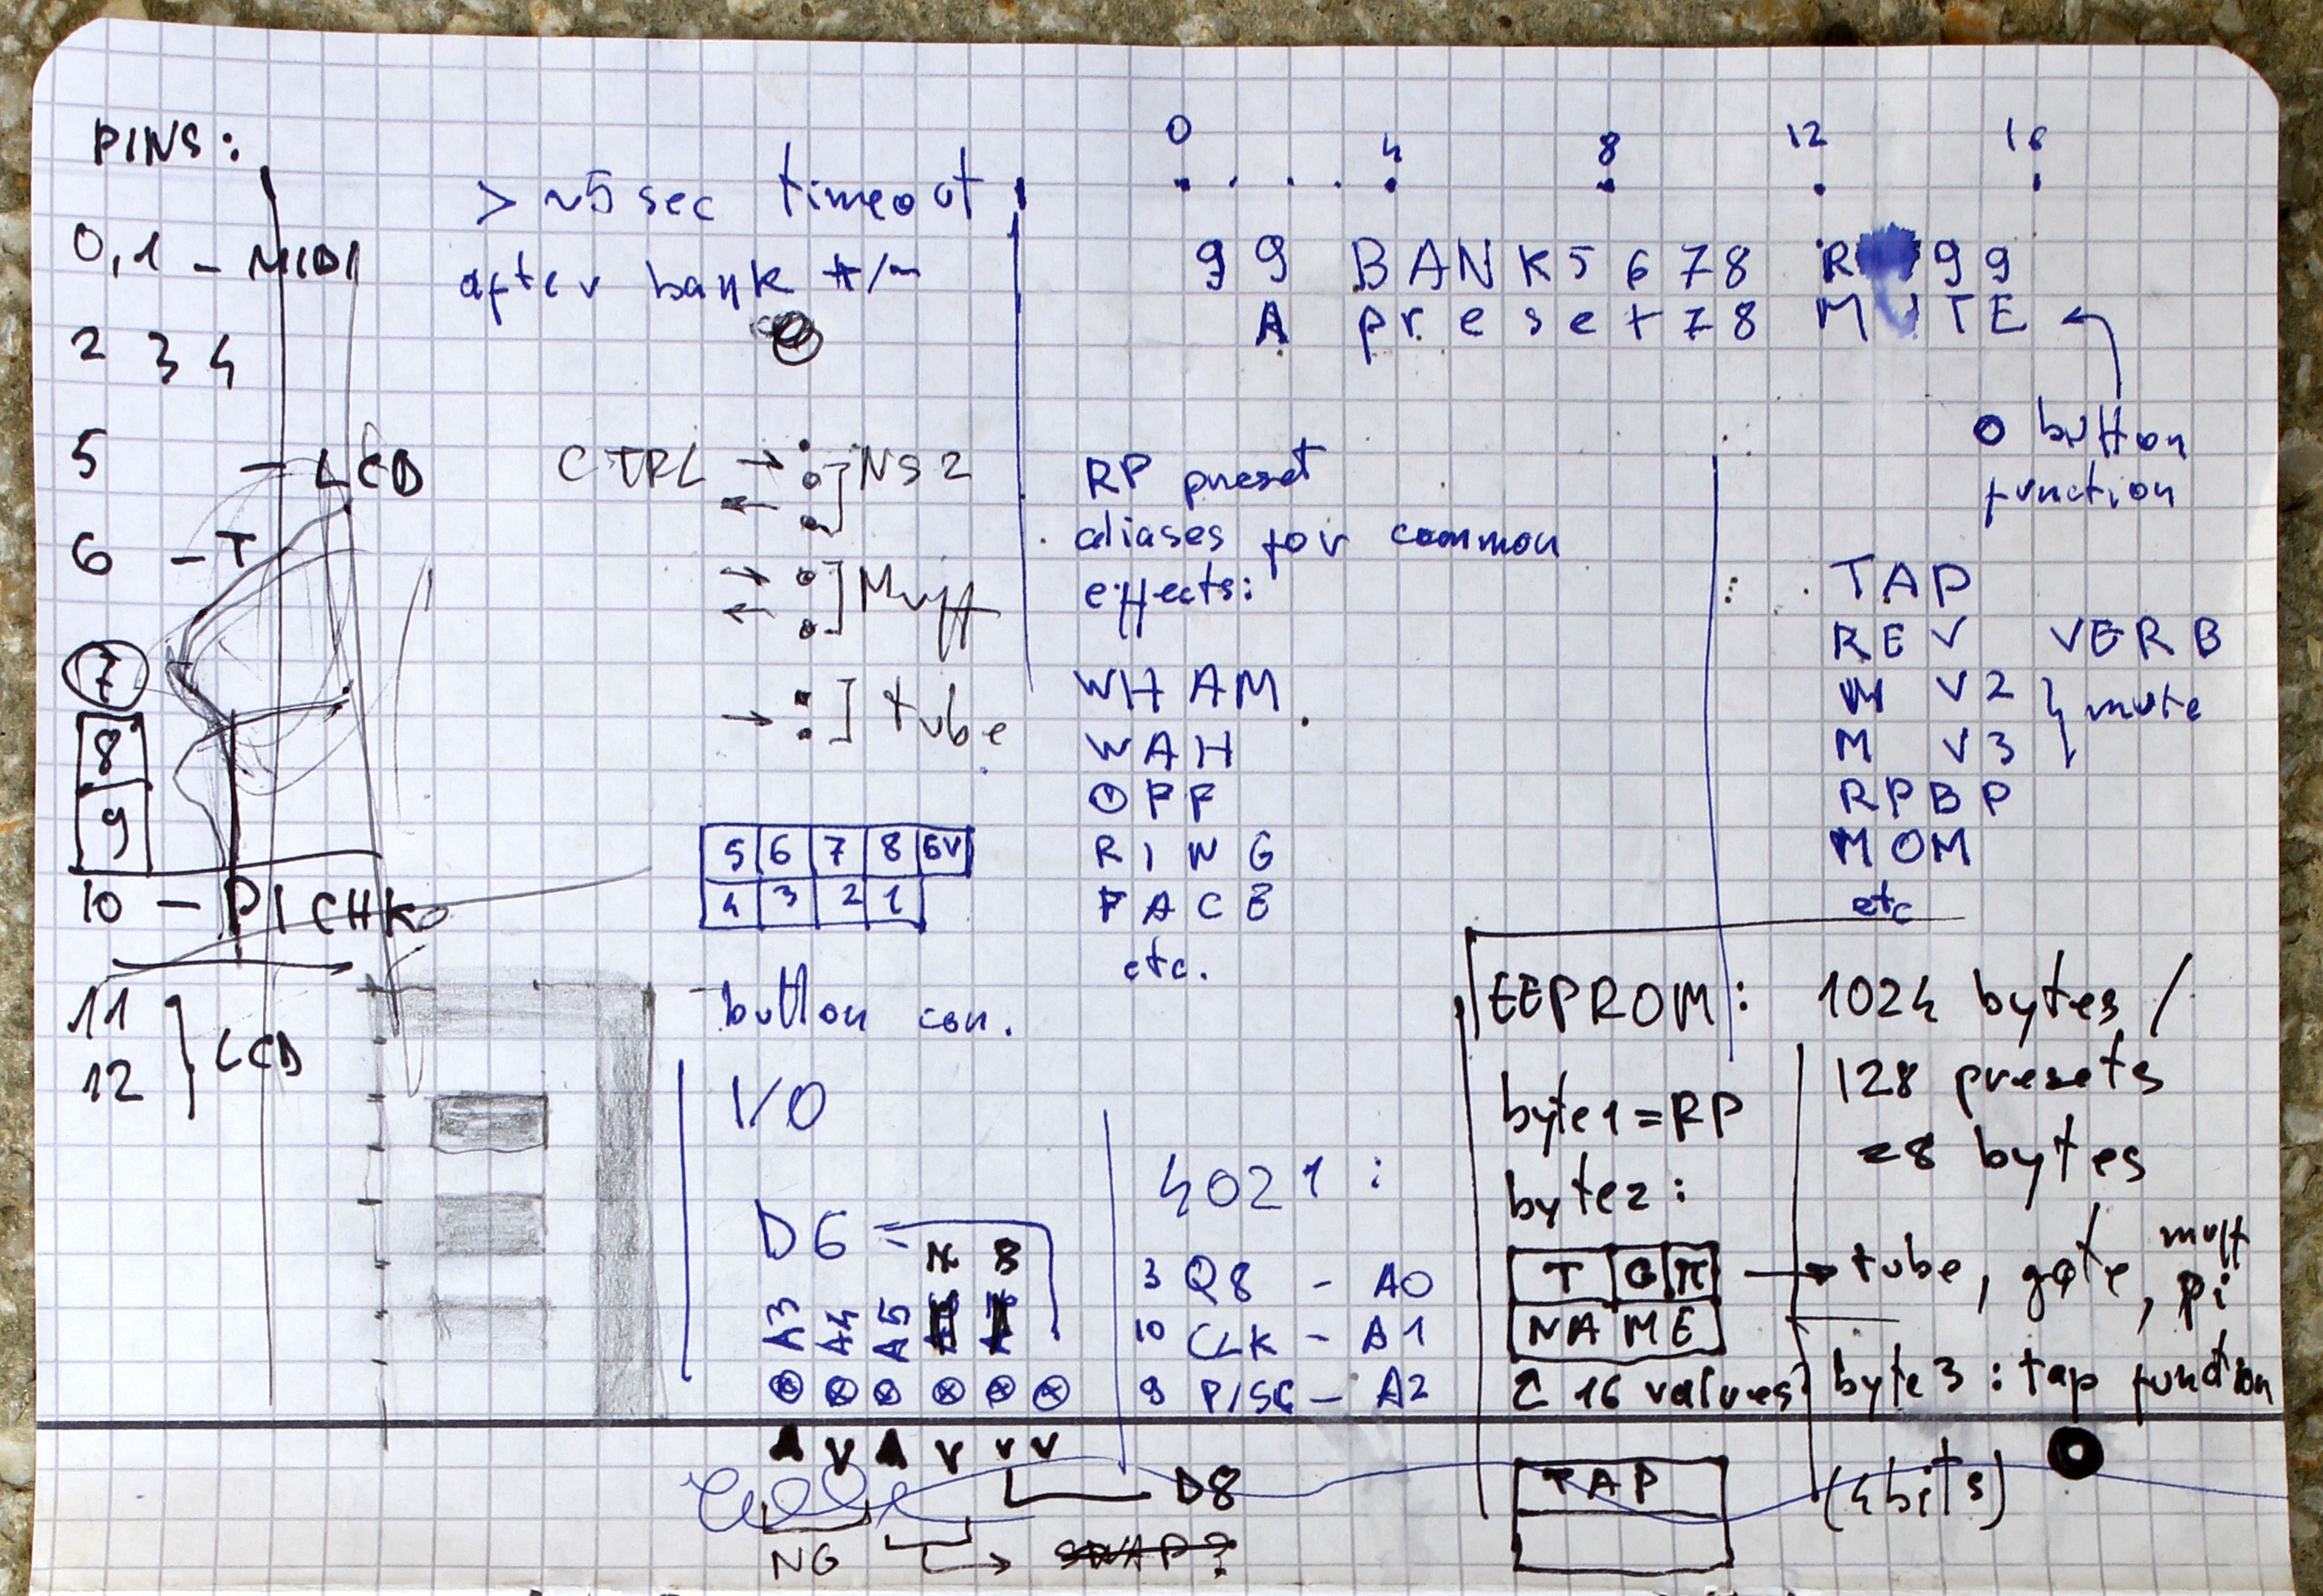 PINS:
0,1 - MIDI
2 3 4
5 - LCD
6 - T
7
8
9
10 - PICHK
11
12
LCD
> ~5 sec timeout
after bank +/-
CTRL
NS2
Muff
tube
5 6 7 8 6V
4 3 2 1
button con.
I/O
D6
N B
A3 A4 A5
NG
D8
SWAP?
0 4 8 12 16
99 BANK5678 R 99
A preset78 MUTE
button
function
RP preset
aliases for common
effects:
WHAM
WAH
OFF
RING
FACE
etc.
TAP
REV VERB
M V2
M V3
mute
RPBP
MOM
etc
4021:
3 Q8 - A0
10 CLK - A1
9 P/SC - A2
EEPROM: 1024 bytes /
128 presets
=8 bytes
byte1=RP
byte2:
T G π
tube, gate, muff
pi
NAME
16 values
byte3: tap function
(4bits)
TAP